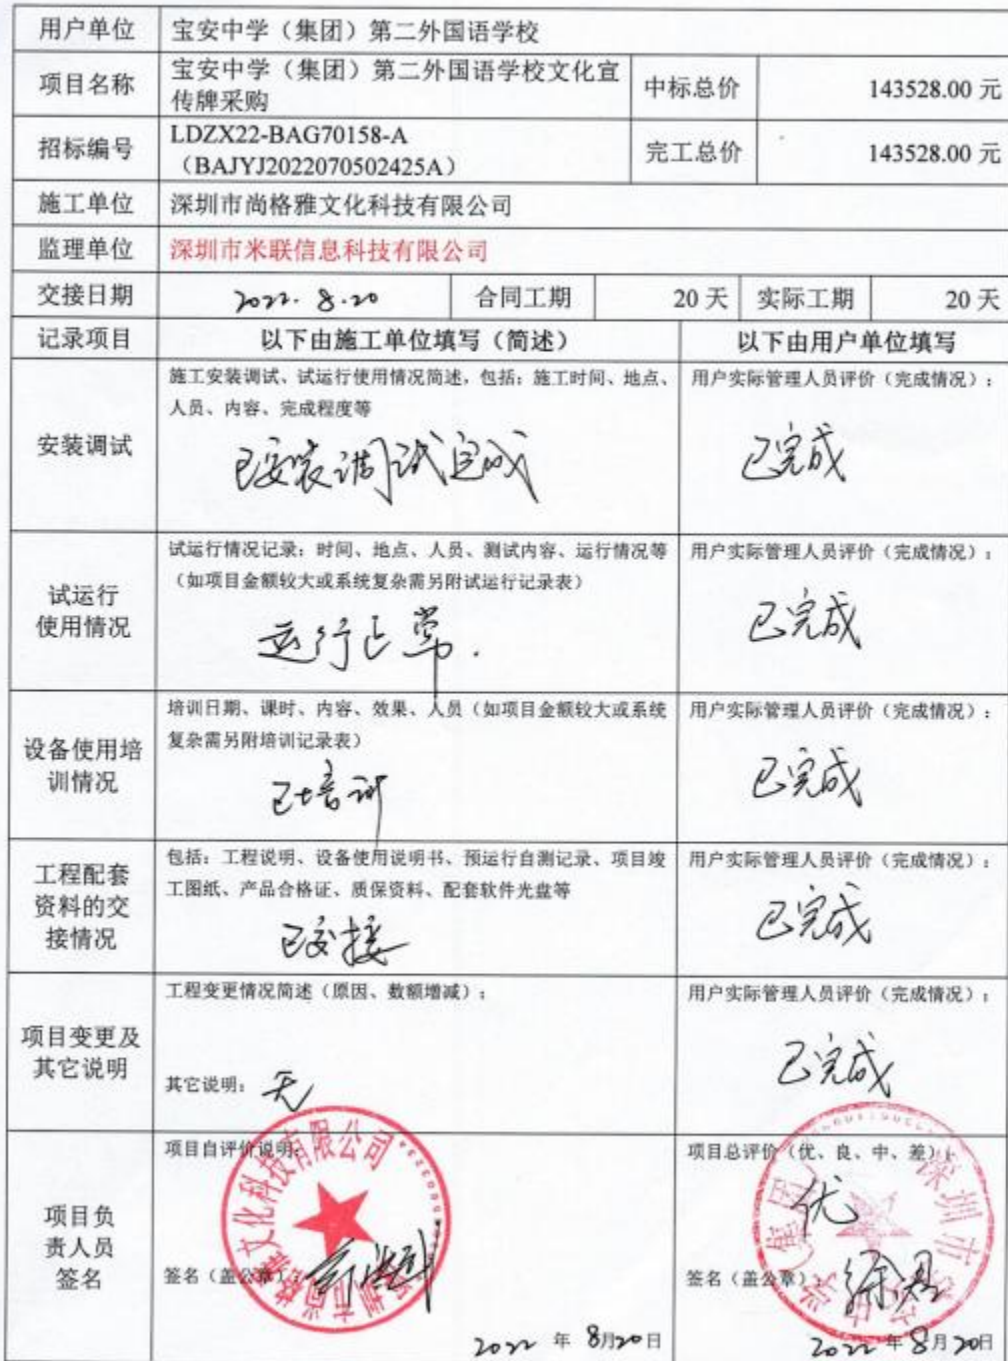 用户单位 宝安中学（集团）第二外国语学校
项目名称 宝安中学（集团）第二外国语学校文化宣
传牌采购 中标总价 143528.00 元
招标编号 LDZX22-BAG70158-A
（BAJYJ2022070502425A） 完工总价 143528.00 元
施工单位 深圳市尚格雅文化科技有限公司
监理单位 深圳市米联信息科技有限公司
交接日期 2022.8.20 合同工期 20 天 实际工期 20 天
记录项目 以下由施工单位填写（简述） 以下由用户单位填写
安装调试
施工安装调试、试运行使用情况简述，包括：施工时间、地点、
人员、内容、完成程度等
已安装调试完成
用户实际管理人员评价（完成情况）：
已完成
试运行
使用情况
试运行情况记录：时间、地点、人员、测试内容、运行情况等
（如项目金额较大或系统复杂需另附试运行记录表）
运行正常.
用户实际管理人员评价（完成情况）：
已完成
设备使用培
训情况
培训日期、课时、内容、效果、人员（如项目金额较大或系统
复杂需另附培训记录表）
已培训
用户实际管理人员评价（完成情况）：
已完成
工程配套
资料的交
接情况
包括：工程说明、设备使用说明书、预运行自测记录、项目竣
工图纸、产品合格证、质保资料、配套软件光盘等
已交接
用户实际管理人员评价（完成情况）：
已完成
项目变更及
其它说明
工程变更情况简述（原因、数额增减）：
其它说明：无
用户实际管理人员评价（完成情况）：
已完成
项目负
责人员
签名
项目自评价说明：
深圳市尚格雅文化科技有限公司
签名（盖公章）：
2022 年 8月20日
项目总评价（优、良、中、差）：
优
签名（盖公章）：
2022 年 8月20日